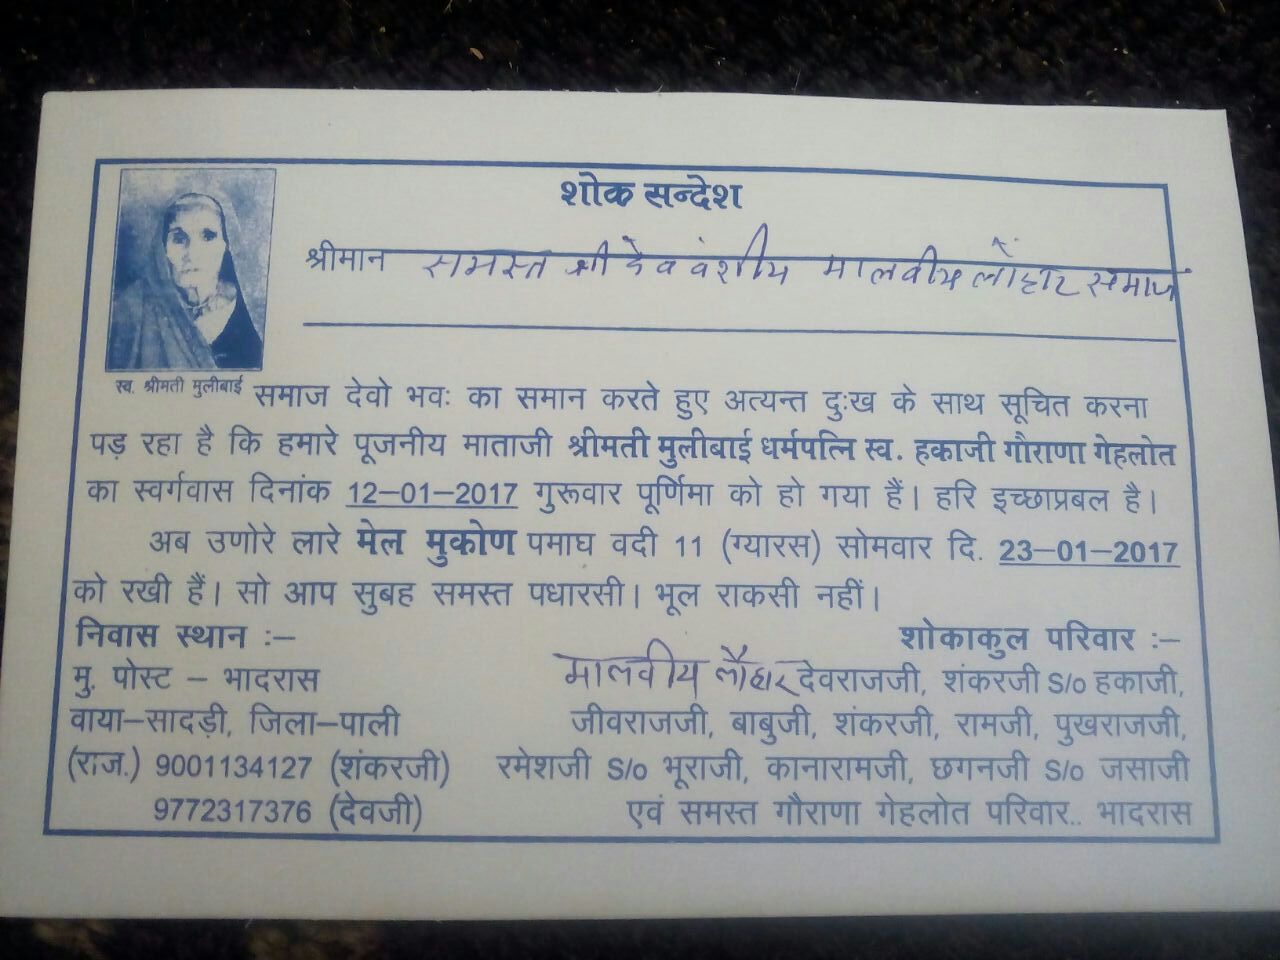 शोक सन्देश
श्रीमान समस्त श्री देव वंशीय मालवीय लौहार समाज
स्व. श्रीमती मुलीबाई
समाज देवो भवः का समान करते हुए अत्यन्त दुःख के साथ सूचित करना
पड़ रहा है कि हमारे पूजनीय माताजी श्रीमती मुलीबाई धर्मपत्नि स्व. हकाजी गौराणा गेहलोत
का स्वर्गवास दिनांक 12-01-2017 गुरूवार पूर्णिमा को हो गया हैं। हरि इच्छाप्रबल है।
अब उणोरे लारे मेल मुकोण पमाघ वदी 11 (ग्यारस) सोमवार दि. 23-01-2017
को रखी हैं। सो आप सुबह समस्त पधारसी। भूल राकसी नहीं।
निवास स्थान :-
मु. पोस्ट - भादरास
वाया-सादड़ी, जिला-पाली
(राज.) 9001134127 (शंकरजी)
9772317376 (देवजी)
शोकाकुल परिवार :-
मालवीय लौहार देवराजजी, शंकरजी S/o हकाजी,
जीवराजजी, बाबुजी, शंकरजी, रामजी, पुखराजजी,
रमेशजी S/o भूराजी, कानारामजी, छगनजी S/o जसाजी
एवं समस्त गौराणा गेहलोत परिवार.. भादरास